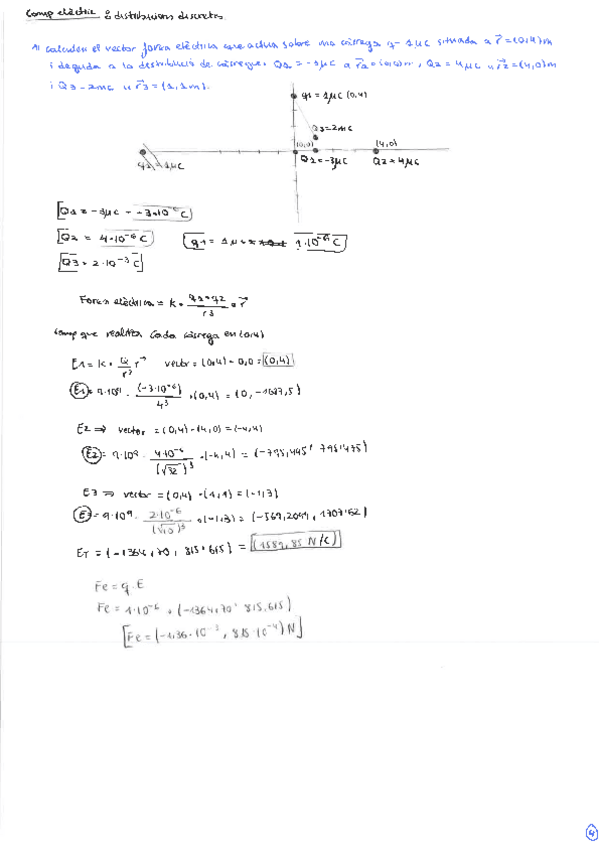 Camp elèctric : distribucions discretes.
1) Calculeu el vector força elèctrica que actua sobre una càrrega q= 1μC situada a r⃗=(0,4)m
i deguda a la distribució de càrregues Q1 = -3μC a r⃗1=(0,0)m, Q2 = 4μC a r⃗2=(4,0)m
i Q3 = 2mC a r⃗3 = (1,1m).
q1 = 1μC (0,4)
Q3=2mC
(0,0)
(4,0)
q1 = 1μC
Q1=-3μC
Q2= 4μC
Q1= -3μC = -3·10⁻⁶ C
Q2 = 4·10⁻⁶ C
q1 = 1μC = 1·10⁻⁶ C
Q3 = 2·10⁻³ C
Força elèctrica = k · q1·q2/r³ · r⃗
Camp que realitza cada càrrega en (0,4)
E1 = k · Q/r³ r⃗ vector = (0,4) - 0,0 = (0,4)
E1 = 9·10⁹ · (-3·10⁻⁶)/4³ · (0,4) = (0, -1687,5)
E2 ⇒ vector = (0,4) - (4,0) = (-4,4)
E2 = 9·10⁹ · 4·10⁻⁶/(√32)³ · (-4,4) = (-795,495, 795,495)
E3 ⇒ vector = (0,4) - (1,1) = (-1,3)
E3 = 9·10⁹ · 2·10⁻⁶/(√10)³ · (-1,3) = (-569,2099, 1707'62)
ET = (-1364,70, 815'615) = (1589,85 N/C)
Fe = q · E
Fe = 1·10⁻⁶ · (-1364,70, 815.615)
Fe = (-1,36·10⁻³, 8,15·10⁻⁴) N
4